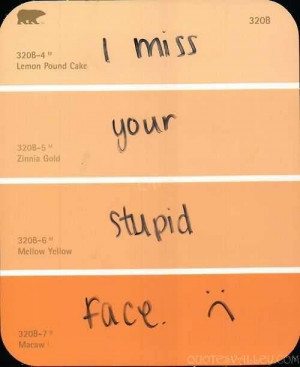 320B
320B-4
Lemon Pound Cake
I miss
320B-5
Zinnia Gold
your
320B-6
Mellow Yellow
stupid
320B-7
Macaw
Face. :(
QUOTESVALLEY.COM